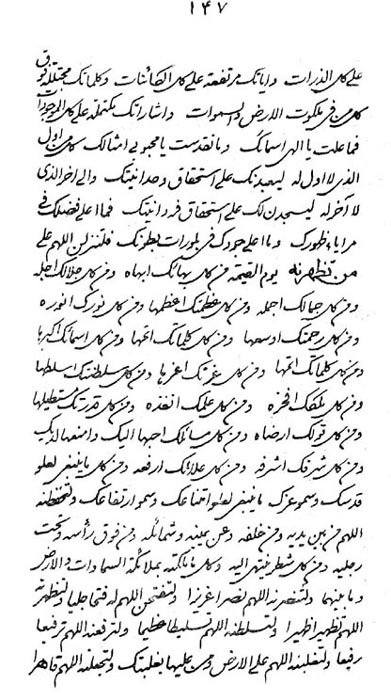 ١٤٧
على كل الذرات واياتك مرتفعة على كل الكائنات وكلماتك مجتللة فوق
كل من في ملكوت الارض والسموات واشاراتك مكتملة على كل الموجودات
فما علت يا الهي اسمائك وما تقدست يا محبوبي امثالك كل من اول
الذي لا اول له ليعبدنك على استحقاق وحدانيتك والى اخر الذي
لا آخر له ليسجدن لك على استحقاق فردانيتك فما اعلى فضلك في
مرايا ظهورك وما اعلى جودك في بلورات بطونك فلتنزلن اللهم على
من تظهرنه يوم القيمة من كل بهائك ابهاه ومن كل جلالك اجله
ومن كل جمالك اجمله ومن كل عظمتك اعظمها ومن كل نورك انوره
ومن كل رحمتك اوسعها ومن كل كلماتك اتمها ومن كل اسمائك اكبرها
ومن كل كلماتك اتمها ومن كل عزتك اعزها ومن كل سلطنتك اسلطها
ومن كل ملكك افخره ومن كل علمك انفذه ومن كل قدرتك مستطيلها
ومن كل قولك ارضاه ومن كل مسائلك احبها اليك وامنعها لديك
ومن كل شرفك اشرفه ومن كل علائك ارفعه ومن كل ما ينبغي لعلو
قدسك وسمو عزك ما ينبغي لعلو امتناعك وسمو ارتفاعك ولتحفظنه
اللهم من بين يديه ومن خلفه وعن يمينه وشمائله ومن فوق رأسه وتحت
رجليه ومن كل شطر ينتهي اليه وكل ما ملكته بملائكة السموات والارض
وما بينهما ولتنصرنه اللهم نصرا عزيزا ولتفتحن اللهم له فتحا جليا ولتظهرنه
اللهم تظهيرا ظهيرا ولتسلطنه اللهم تسليطا عظيما ولترفعنه اللهم ترفيعا
رفيعا ولتغلبنه اللهم على الارض ومن عليها بغلبتك ولتجعلنه اللهم قاهرا